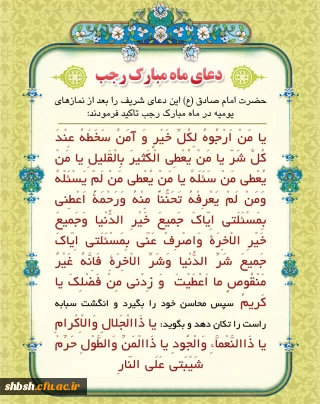 دعای ماه مبارک رجب
حضرت امام صادق (ع) این دعای شریف را بعد از نمازهای
یومیه در ماه مبارک رجب تاکید فرمودند:
یا مَنْ اَرْجُوهُ لِکُلِّ خَیْرٍ وَ آمَنُ سَخَطَهُ عِنْدَ
کُلِّ شَرٍّ یا مَنْ یُعْطِی الْکَثیرَ بِالْقَلیلِ یا مَنْ
یُعْطی مَنْ سَئَلَهُ یا مَنْ یُعْطی مَنْ لَمْ یَسْئَلْهُ
وَمَنْ لَمْ یَعْرِفْهُ تَحَنُّناً مِنْهُ وَرَحْمَةً اَعْطِنی
بِمَسْئَلَتی اِیّاکَ جَمیعَ خَیْرِ الدُّنْیا وَجَمیعَ
خَیْرِ الاْخِرَةِ وَاصْرِفْ عَنّی بِمَسْئَلَتی اِیّاکَ
جَمیعَ شَرِّ الدُّنْیا وَشَرِّ الاْخِرَةِ فَاِنَّهُ غَیْرُ
مَنْقُوصٍ ما اَعْطَیْتَ وَ زِدْنی مِنْ فَضْلِکَ یا
کَریمُ سپس محاسن خود را بگیرد و انگشت سبابه
راست را تکان دهد و بگوید: یا ذَاالْجَلالِ وَالاِْکْرامِ
یا ذَاالنَّعْماَّءِ وَالْجُودِ یا ذَاالْمَنِّ وَالطَّوْلِ حَرِّمْ
شَیْبَتی عَلَی النّارِ
shbsh.cfu.ac.ir